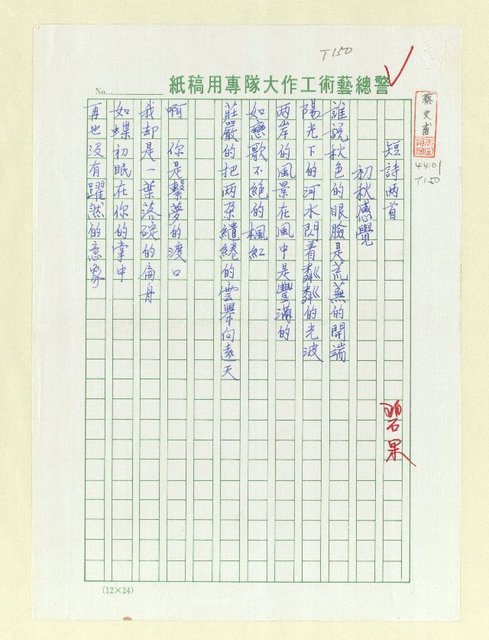 T150
警總藝術工作大隊專用稿紙
No.
蔡文甫
4401
T150
短詩兩首
初秋感覺
碧果
誰說秋色的眼臉是荒蕪的開端
陽光下的河水閃着粼粼的光波
兩岸的風景在風中是豐滿的
如戀歌不絕的楓紅
莊嚴的把兩朵繾綣的雲舉向遠天
啊 你是繫夢的渡口
我却是一葉落碇的扁舟
如蝶初眠在你的掌中
再也沒有躍然的意象
(12×24)